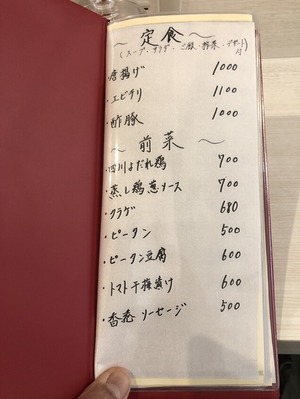 ～ 定食 ～
(スープ、サラダ、ご飯、搾菜、デザート付
・唐揚げ 1000
・エビチリ 1100
・酢豚 1000
～ 前菜 ～
・四川よだれ鶏 700
・蒸し鶏葱ソース 700
・クラゲ 680
・ピータン 500
・ピータン豆腐 600
・トマト干梅漬け 600
・香港ソーセージ 500